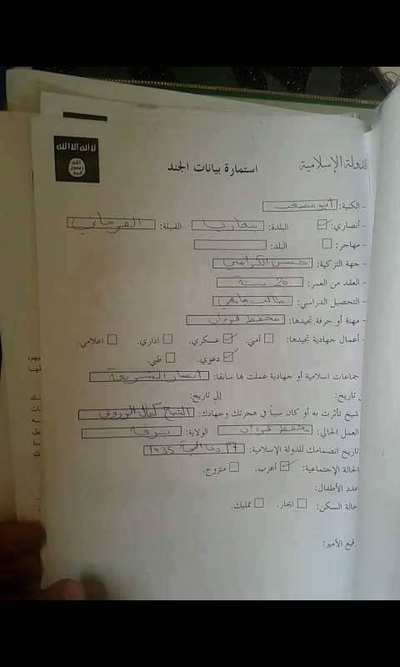 لا اله الا الله
الله
رسول
محمد
الدولة الإسلامية
استمارة بيانات الجند
- الكنية: أبو مصعب
- أنصاري: البلدة: بنغازي القبيلة: الفرجاني
- مهاجر: البلد:
- جهة التزكية: حسن الكرامي
- العقد من العمر: 20 سنة
- التحصيل الدراسي: طالب جامعي
- مهنة أو حرفة تجيدها: محفظ قرآن
- أعمال جهادية تجيدها: أمني. عسكري. اداري. اعلامي.
دعوي. طبي.
جماعات اسلامية أو جهادية عملت ها سابقا: أنصار الشريعة
ن تاريخ: إلى تاريخ:
شيخ تأثرت به أو كان سبباً في هجرتك وجهادك: الشيخ كمال
العمل الحالي: محفظ قرآن الولاية: برقة
تاريخ انضمامك للدولة الإسلامية: 17 ذي الحجة 1435
الحالة الإجتماعية: أعزب. متزوج.
عدد الأطفال:
حالة السكن: ايجار. تمليك.
قيع الأمير: